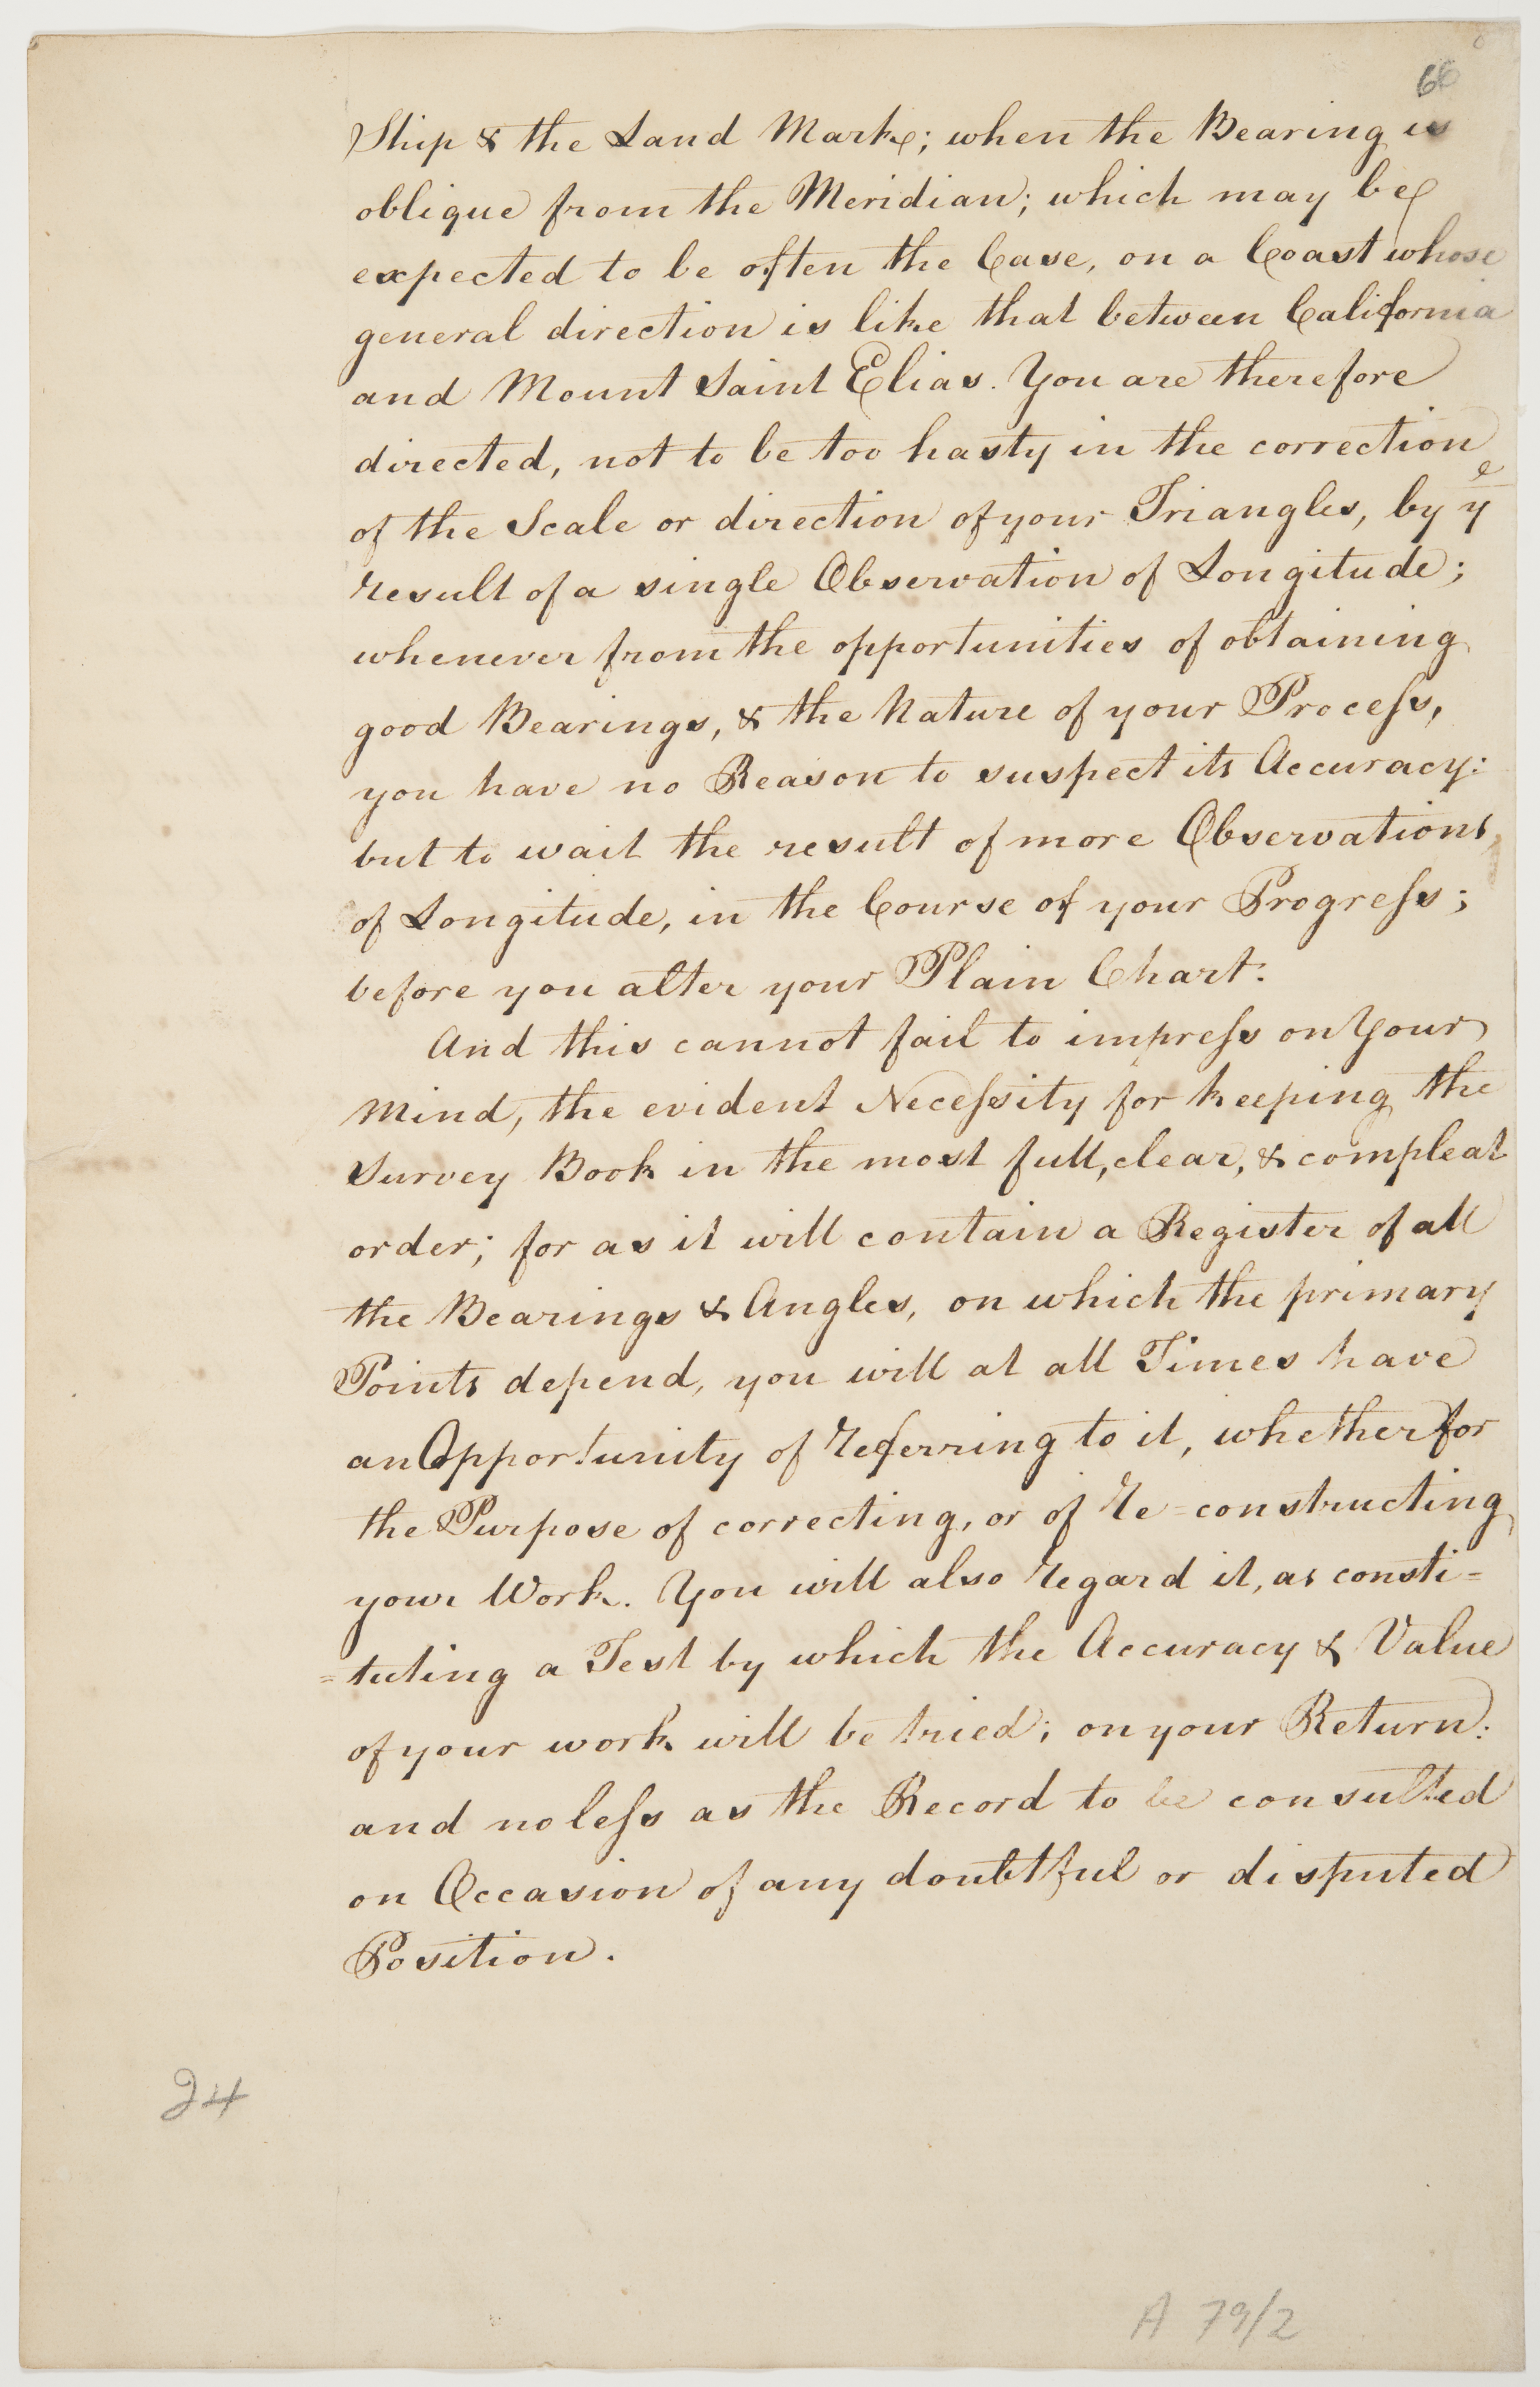 66
Ship & the Land Mark; when the Bearing is
oblique from the Meridian; which may be
expected to be often the Case, on a Coast whose
general direction is like that between California
and Mount Saint Elias. You are therefore
directed, not to be too hasty in the correction
of the Scale or direction of your Triangles, by yᵉ
result of a single Observation of Longitude;
whenever from the opportunities of obtaining
good Bearings, & the Nature of your Proceſs,
you have no Reason to suspect its Accuracy:
but to wait the result of more Observations,
of Longitude, in the Course of your Progreſs;
before you alter your Plain Chart.
And this cannot fail to impreſs on Your
Mind, the evident Neceſsity for keeping the
Survey Book in the most full, clear, & compleat
order; for as it will contain a Register of all
the Bearings & Angles, on which the primary
Points depend, you will at all Times have
an Opportunity of referring to it, whether for
the Purpose of correcting, or of re-constructing
your Work. You will also regard it, as consti=
=tuting a Test by which the Accuracy & Value
of your work will be tried; on your Return:
and no leſs as the Record to be consulted
on Occasion of any doubtful or disputed
Position.
24
A 79/2